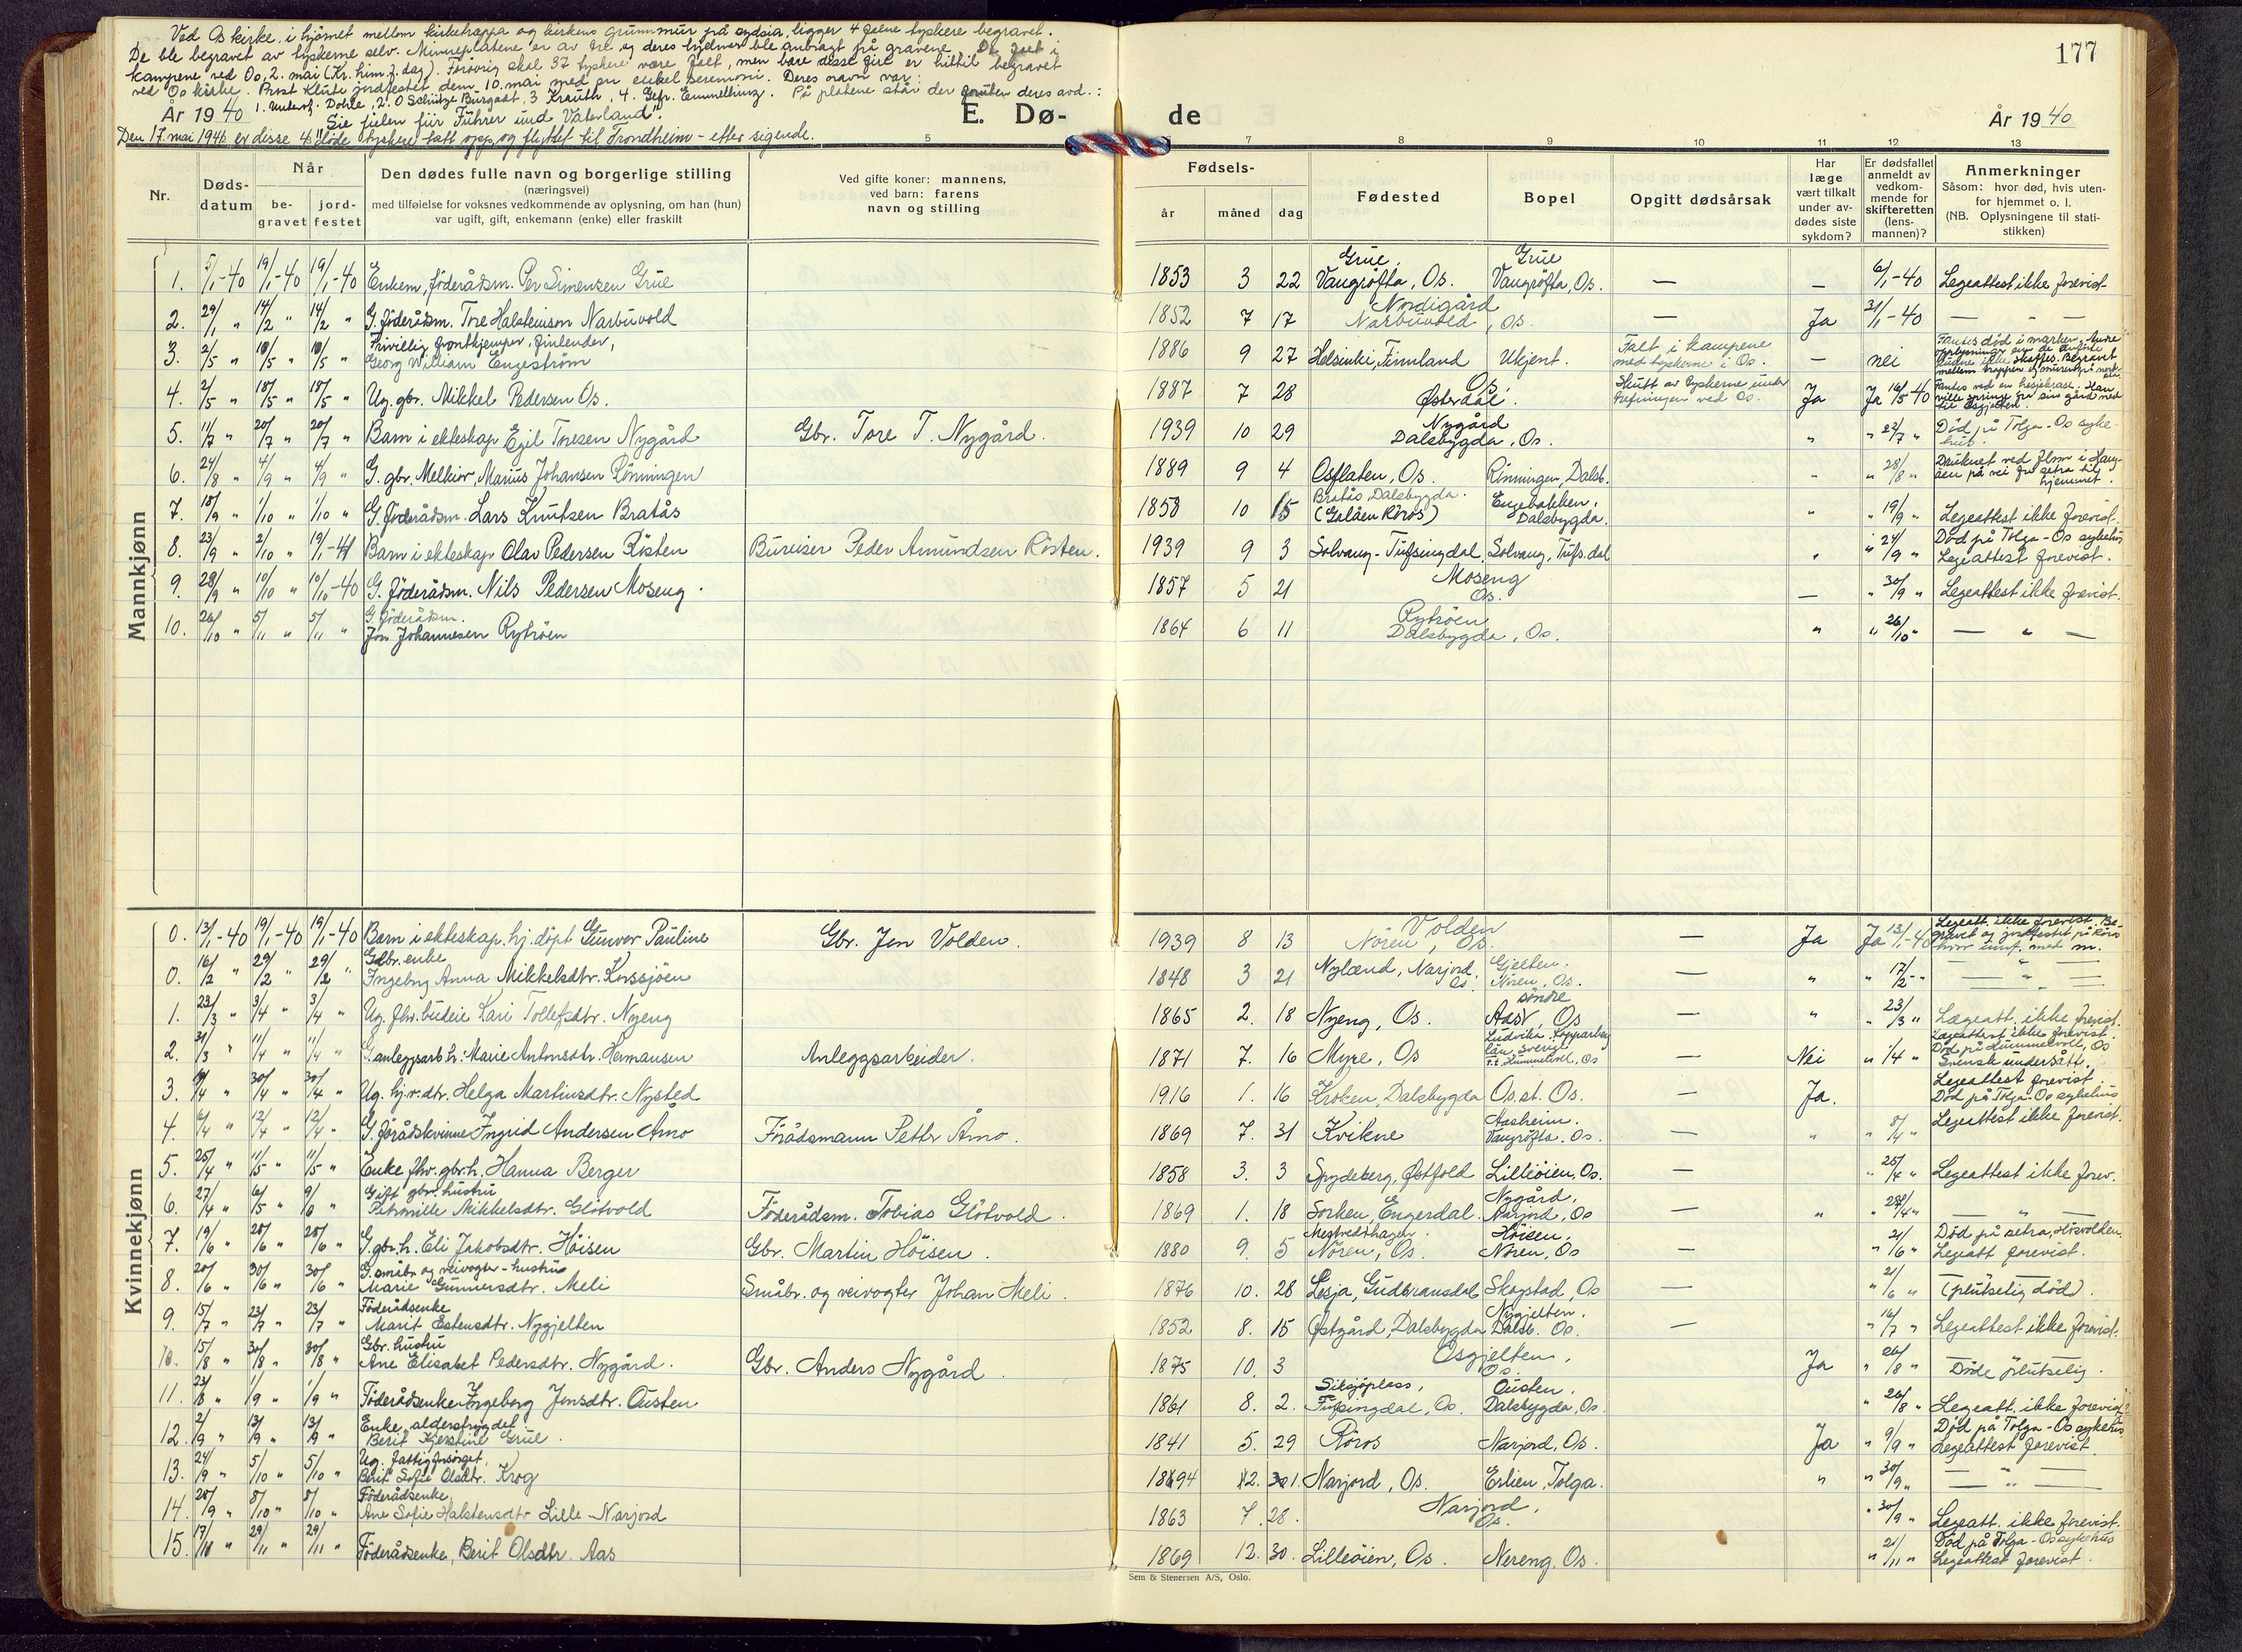 Ved Os kirke i hjørnet mellem kirketrappa og kirkens grunnmur på sydsia, ligger 4 falne tyskere begravet.
De ble begravet av tyskerne selv. Minneplatene er av tre og deres hjelmer ble anbragt på gravene. De falt i
kampene ved Os, 2. mai (Kr. him.f. dag). Forøvrig skal 37 tyskere være falt, men bare disse fire er hittil begravet
ved Os kirke. Prost Klüte jordfestet dem 10. mai med en enkel seremoni. Deres navn var:
1. Unterof. Dohle, 2. O Schütze Burgadt, 3 Krauth, 4. Gefr. Emmelhinz. På platene står der foruten deres avd.:
"Sie fielen für Führer und Vaterland".
Den 17. mai 1940 er disse 4 døde tyskere tatt opp og flyttet til Trondheim - etter sigende.
177
År 1940
E. Dø-
de
År 1940
5 7 8 9 10 11 12 13
Nr.
Døds-
datum
Når
be-
gravet
jord-
festet
Den dødes fulle navn og borgerlige stilling
(næringsvei)
med tilføielse for voksnes vedkommende av oplysning, om han (hun)
var ugift, gift, enkemann (enke) eller fraskilt
Ved gifte koner: mannens,
ved barn: farens
navn og stilling
Fødsels-
år måned dag
Fødested
Bopel
Opgitt dødsårsak
Har
læge
vært tilkalt
under av-
dødes siste
sykdom?
Er dødsfallet
anmeldt av
vedkom-
mende for
skifteretten
(lens-
mannen)?
Anmerkninger
Såsom: hvor død, hvis uten-
for hjemmet o. l.
(NB. Oplysningene til stati-
stikken)
Mannkjønn
1. 5/1-40 19/1-40 19/1-40 Enkem, föderådsm. Per Simensen Grue 1853 3 22 Grue, Vangröfta, Os. Grue Vangröfta, Os. — — 6/1-40 Legeattest ikke forevist
2. 29/1 " 14/2 " 14/2 " G. föderådsm. Tore Halsteinson Narbuvold 1852 7 17 Nordigård Narbuvold, Os. — Ja 31/1-40 — " —
3. 2/5 " 18/5 " 18/5 " Frivillig frontkjemper, finlender, Georg William Engeström 1886 9 27 Helsinki, Finnland Ukjent. Falt i kampene med tyskerne i Os. — nei Fantes död i marken. Andre oplysninger Begravet mellem trappen og muren på
4. 2/5 " 18/5 " 18/5 " Ug. gbr. Mikkel Pedersen Os. 1887 7 28 Os, Østerdal. Skutt av tyskerne under trefningen ved Os. Ja Ja 16/5 40 Fantes ved en Han ville springe fra sin gård ned til Osgjelten.
5. 11/7 " 20/7 " 20/7 " Barn i ekteskap Egil Toresen Nygård Gbr. Tore T. Nygård. 1939 10 29 Nygård Dalsbygda, Os. " " 23/7 " Död på Tolga-Os sykehus.
6. 24/8 " 4/9 " 4/9 " G. gbr. Melkior, Marius Johansen Rönningen 1889 9 4 Osflaten, Os. Rönningen, Dalsb. " " 28/8 " Druknet ved flom i på vei fra setra til hjemmet.
7. 18/9 " 1/10 " 1/10 " G. Föderådsm. Lars Knutsen Bratås 1858 10 15 Bratås, Dalsbygda. (Galåen Röros) Engebakken, Dalsbygda. " " 19/9 " Legeattest ikke forevist.
8. 23/9 " 2/10 " 19/1-41 Barn i ekteskap Olav Pedersen Rösten Bureiser Peder Amundsen Rösten. 1939 9 3 Solvang-Tufsingdal. Solvang, Tufs.dal " " 24/9 " Död på Tolga-Os sykehus Legeattest forevist.
9. 28/9 " 10/10 " 10/10-40 G. föderådsm. Nils Pedersen Moseng. 1857 5 21 Moseng Os. — " 30/9 " Legeattest ikke forevist.
10. 26/10 " 5/11 " 5/11 " G. föderådsm. Jon Johannesen Rytröen 1864 6 11 Rytröen Dalsbygda, Os. " " 26/10 " — " —
Kvinnekjønn
0. 13/1-40 19/1-40 19/1-40 Barn i ekteskap. hj. döpt Gunvor Pauline Gbr. Jon Volden. 1939 8 13 Volden Nören, Os. — Ja Ja 13/1-40 Legeatt. ikke forevist. Begravet og jordfestet på Röros
0. 16/2 " 29/2 " 29/2 " Gdbr. enke Ingebrg Anna Mikkelsdtr. Korssjöen 1848 3 21 Nyland, Narjord. Os. Gjelten. Nören, Os. — " " 17/2 " — " —
1. 23/3 " 3/4 " 3/4 " Ug. fhv. budeie Kari Tollefsdtr. Nyeng 1865 2. 18 Nyeng, Os. söndre Aas, Os — " " 23/3 " Lægeatt. ikke forevist.
2. 31/3 " 11/4 " 11/4 " G. anleggsarb. h.: Marie Antonsdtr. Hermansen Anleggsarbeider. 1871 7. 16 Myre, Os Ludvika. Kopparbergs län Sverige F.t. Hummelvoll, Os — Nei " 1/4 " Lægeattest ikke forevist. Död på Hummelvoll, Os Svensk undersått.
3. 19/4 " 30/4 " 30/4 " Ug. hj.v. dtr. Helga Martinsdtr. Nysted 1916 1. 16 Kroken, Dalsbygda Os.st. Os. — Ja. Legeattest forevist. Död på Tolga-Os sykehus
4. 6/4 " 12/4 " 12/4 " G. förådskvinne Ingrid Andersen Åmo Förådsmann Petter Åmo. 1869 7. 31 Kvikne Aasheim. Vangröfta. Os. — " " 8/4 " Legeattest ikke forevist.
5. 25/4 " 11/5 " 11/5 " Enke fhv. gbr.h. Hanna Berger 1858 3. 3 Spydeberg, Østfold Lilleöien, Os. — " 25/4 " Legeattest ikke forev.
6. 27/4 " 6/5 " 9/6 " Gift gbr. hustru Petronille Mikkelsdtr. Glötvold Föderådsm. Tobias Glötvold. 1869 1. 18 Sorken, Engerdal. Nygård, Narjord, Os — " " 28/4 " — " —
7. 19/6 " 28/6 " 28/6 " G. gbr. h. Eli Jakobsdtr. Höisen Gbr. Martin Höisen. 1880 9. 5 Nören, Os. Höisen, Nören, Os — " 21/6 " Död på setra, Legeatt forevist.
8. 20/6 " 30/6 " 30/6 " G. småbr og veivogter-hustru Marie Gunnersdtr. Meli Småbr. og veivogter Johan Meli. 1876 10. 28 Lesja, Gudbransdal Skogstad, Os — " 21/6 " (plutselig död).
9. 15/7 " 23/7 " 23/7 " Föderådsenke Marit Estensdtr. Nygjelten 1852 8. 15 Østgård, Dalsbygda Nygjelten. Dalsb. Os. — " 16/7 " Legeattest ikke forevist.
10. 15/8 " 30/8 " 30/8 " Gbr. hustru Ane Elisabet Pedersdtr. Nygård. Gbr. Anders Nygård. 1875 10. 3 Osgjelten, Os. Ja " 26/8 " Döde plutselig.
11. 23/8 " 1/9 " 1/9 " Föderådsenke Ingeborg Jonsdtr. Ousten 1861 8. 2. Siksjöplass, Tufsingdal, Os. Ousten. Dalsbygda, Os. " 26/8 " Legeatt. ikke forevist
12. 2/9 " 13/9 " 13/9 " Enke, alderstrygdet Berit Kjerstine Grue. 1841 5. 29 Röros Narjord, Os. Ja " 9/9 " Död på Tolga-Os sykehus Legeattest forevist.
13. 24/9 " 5/10 " 5/10 " Ug. fattigforsörget, Berit Sofie Olsdtr. Krog 1894 12. 31. Narjord, Os. Erlien, Tolga. " " 30/9 " — " —
14. 28/9 " 8/10 " 8/10 " Föderådsenke Ane Sofie Halstensdtr. Lille-Narjord 1863 7. 28. Narjord, Os. " 30/9 " Legeatt. ikke forevist.
15. 17/11 " 29/11 " 29/11 " Föderådsenke, Berit Olsdtr. Aas 1869 12. 30. Lilleöien, Os. Nereng, Os. " 21/11 " Död på Tolga-Os sykehus Legeattest forevist.
Sem & Stenersen A/S, Oslo.